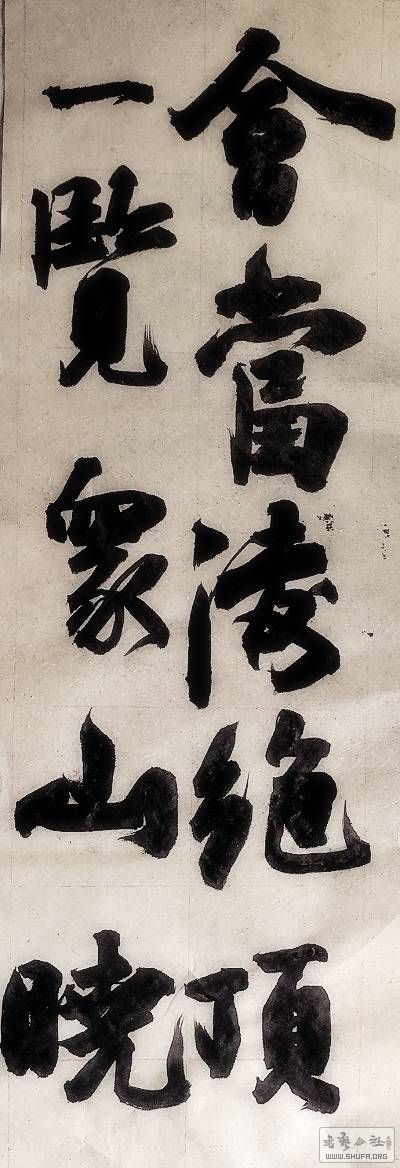 會當凌絶頂
一覽眾山曉
書藝公社
WWW.SHUFA.ORG